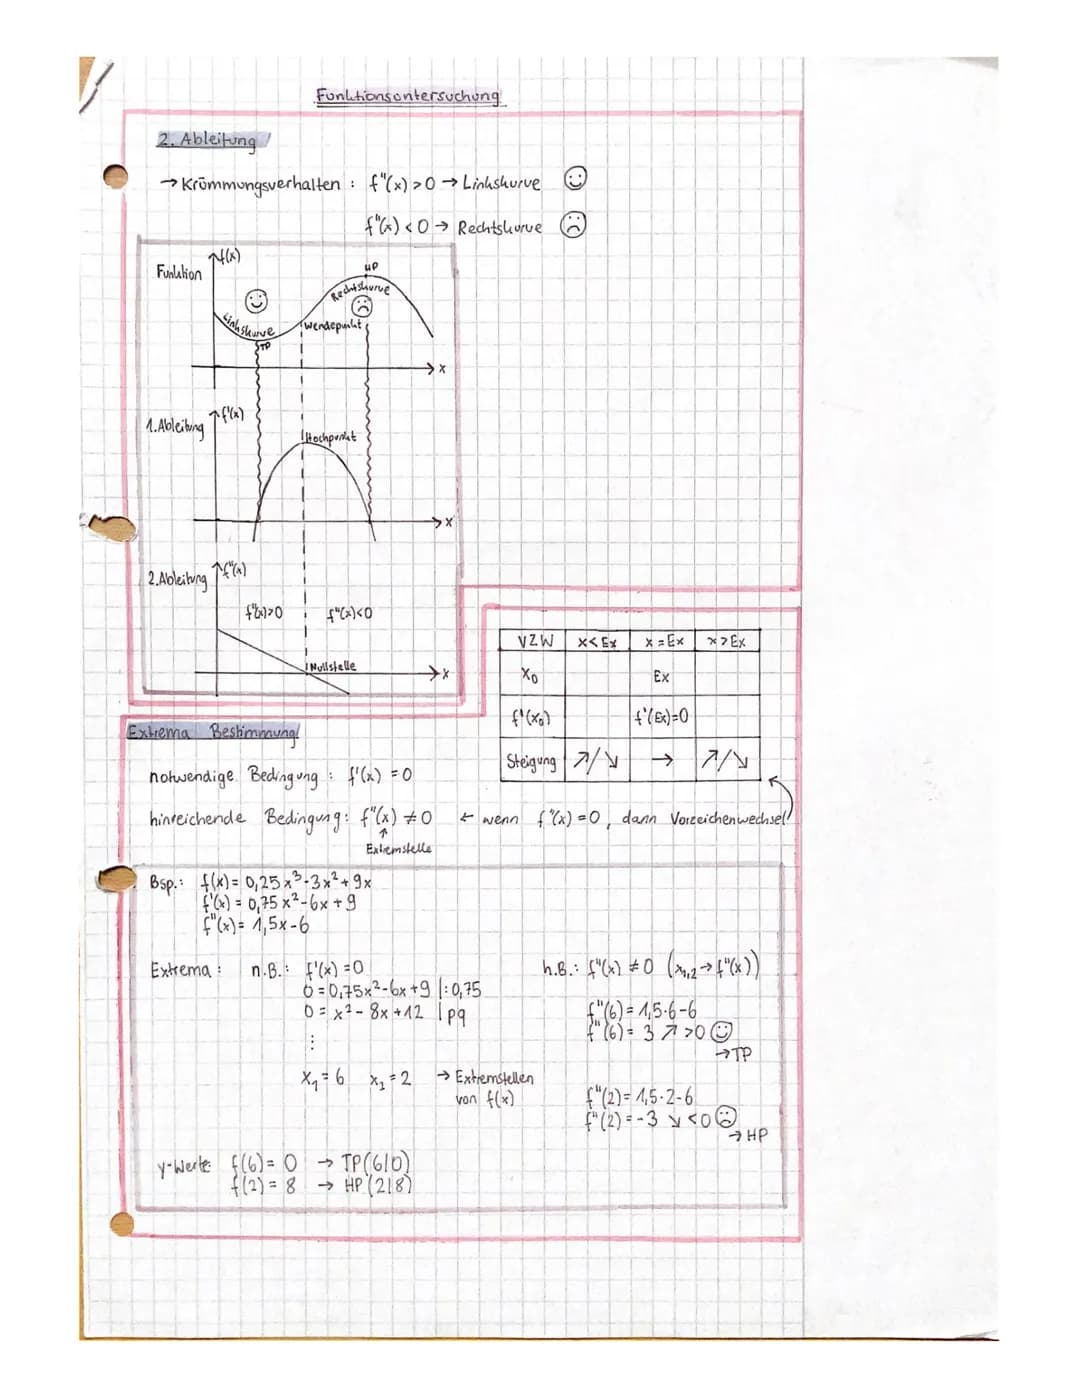 Funktionsuntersuchung
2. Ableitung
→ Krümmungsverhalten : f"(x) > 0 → Linkskurve
f"(x) < 0 → Rechtskurve
Funktion f(x)
HP
Rechtskurve
Linkskurve
Wendepunkt
TP
x
1. Ableitung f'(x)
Hochpunkt
x
2. Ableitung f"(x)
f"(x)>0 f"(x)<0
Nullstelle
x
VZW x<Ex x=Ex x>Ex
x₀ Ex
f'(x₀) f'(Ex)=0
Steigung ↗/↘ → ↗/↘
Extrema Bestimmung
notwendige Bedingung : f'(x) = 0
hinreichende Bedingung: f"(x) ≠ 0 ← wenn f"(x) = 0, dann Vorzeichenwechsel
↑
Extremstelle
Bsp.: f(x) = 0,25x³-3x²+9x
f'(x) = 0,75x²-6x+9
f"(x) = 1,5x-6
Extrema : n.B.: f'(x) = 0
0 = 0,75x²-6x+9 |:0,75
0 = x²-8x+12 | pq
⋮
x₁ = 6 x₂ = 2 → Extremstellen
von f(x)
h.B.: f"(x) ≠ 0 (x₁,₂→f"(x))
f"(6) = 1,5·6-6
f"(6) = 3 ↗ >0
→TP
f"(2) = 1,5·2-6
f"(2) = -3 ↘ <0
→ HP
y-Werte: f(6) = 0 → TP(6|0)
f(2) = 8 → HP(2|8)